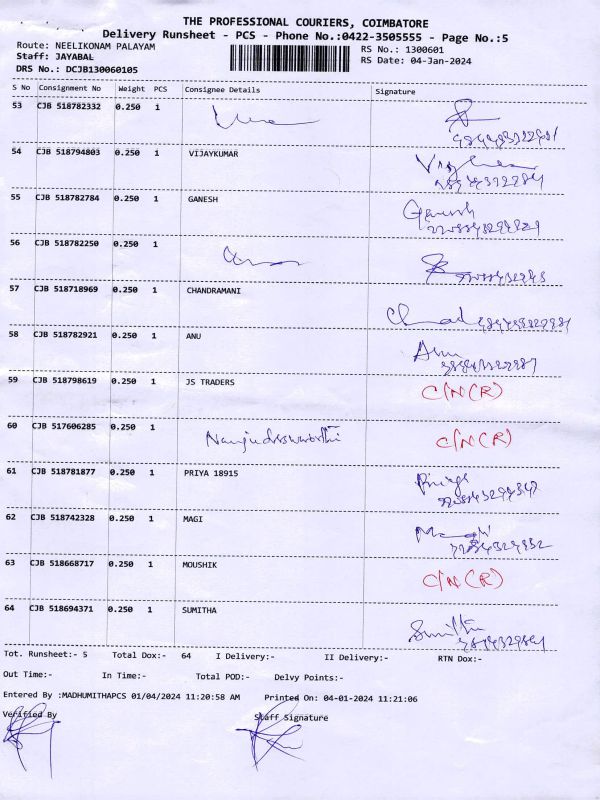 THE PROFESSIONAL COURIERS, COIMBATORE
Delivery Runsheet - PCS - Phone No.:0422-3505555 - Page No.:5
Route: NEELIKONAM PALAYAM
RS No.: 1300601
Staff: JAYABAL
RS Date: 04-Jan-2024
DRS No.: DCJB130060105
S No Consignment No Weight PCS Consignee Details Signature
53 CJB 518782332 0.250 1
54 CJB 518794803 0.250 1 VIJAYKUMAR
55 CJB 518782784 0.250 1 GANESH Ganesh
56 CJB 518782250 0.250 1
57 CJB 518718969 0.250 1 CHANDRAMANI
58 CJB 518782921 0.250 1 ANU Anu
59 CJB 518798619 0.250 1 JS TRADERS C/N(R)
60 CJB 517606285 0.250 1 C/N(R)
61 CJB 518781877 0.250 1 PRIYA 18915 Priya
62 CJB 518742328 0.250 1 MAGI
63 CJB 518668717 0.250 1 MOUSHIK C/N(R)
64 CJB 518694371 0.250 1 SUMITHA Sumitha
Tot. Runsheet:- 5 Total Dox:- 64 I Delivery:- II Delivery:- RTN Dox:-
Out Time:- In Time:- Total POD:- Delvy Points:-
Entered By :MADHUMITHAPCS 01/04/2024 11:20:58 AM Printed On: 04-01-2024 11:21:06
Verified By Staff Signature